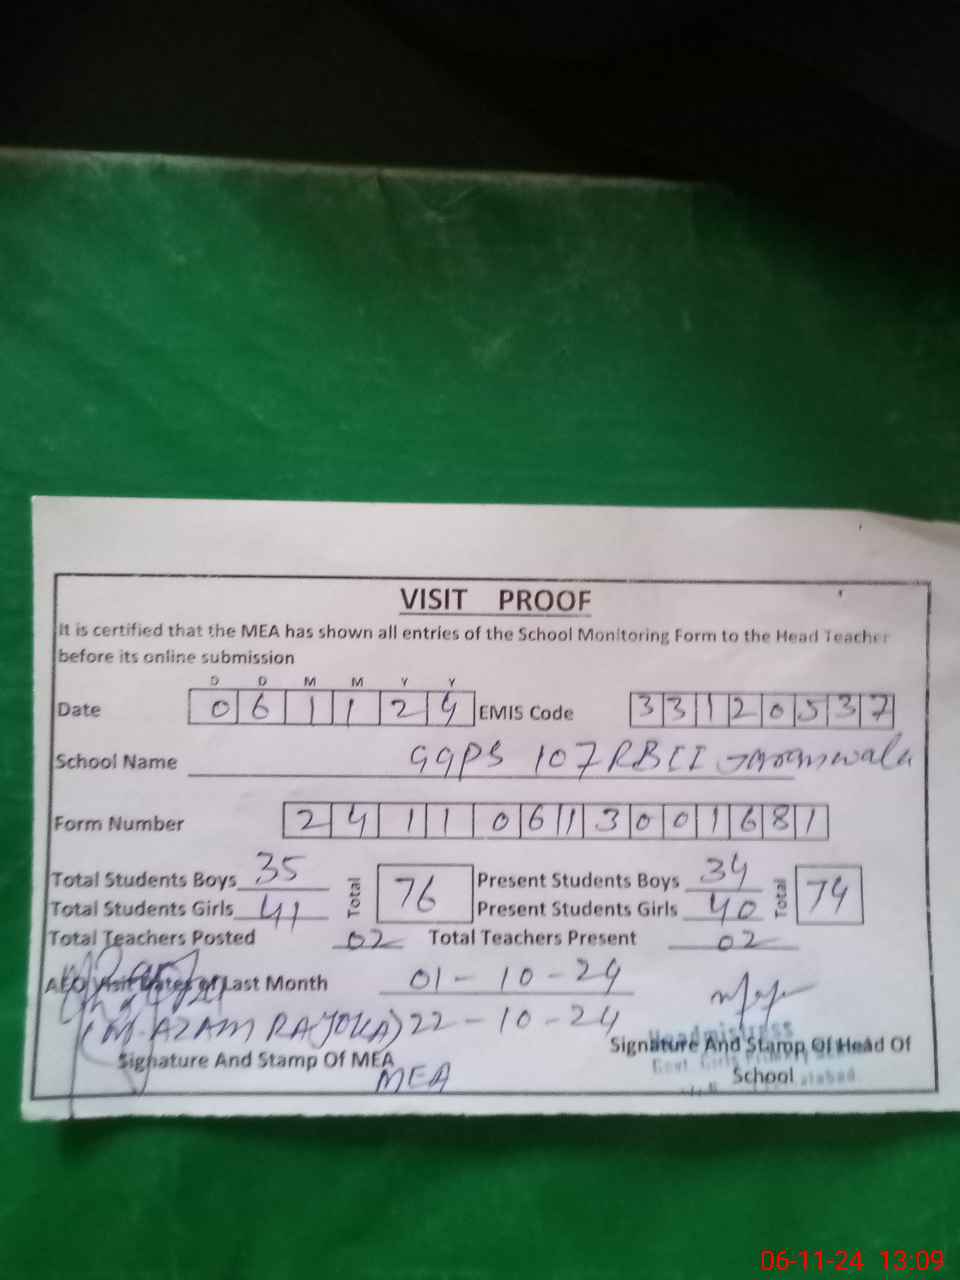 VISIT PROOF
It is certified that the MEA has shown all entries of the School Monitoring Form to the Head Teacher
before its online submission
D D M M Y Y
Date 0 6 1 1 2 4 EMIS Code 3 3 1 2 0 5 3 7
School Name GGPS 107 RBII
Form Number 2 4 1 1 0 6 1 3 0 0 1 6 8 1
Total Students Boys 35 Total 76 Present Students Boys 34 Total 74
Total Students Girls 41 Present Students Girls 40
Total Teachers Posted 02 Total Teachers Present 02
AEO Visit Dates of Last Month 01-10-24
(M. AZAM RAJOKA) 22-10-24
Headmistress
Signature And Stamp Of MEA Signature And Stamp Of Head Of
Govt. Girls
MEA School
06-11-24 13:09